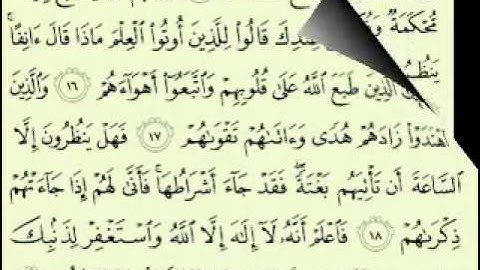 مُّحْكَمَةٌ وَ
عِندِكَ قَالُوا۟ لِلَّذِينَ أُوتُوا۟ ٱلْعِلْمَ مَاذَا قَالَ ءَانِفًا ۚ
ٱلَّذِينَ طَبَعَ ٱللَّهُ عَلَىٰ قُلُوبِهِمْ وَٱتَّبَعُوٓا۟ أَهْوَآءَهُمْ ١٦ وَٱلَّذِينَ
ٱهْتَدَوْا۟ زَادَهُمْ هُدًى وَءَاتَىٰهُمْ تَقْوَىٰهُمْ ١٧ فَهَلْ يَنظُرُونَ إِلَّا
ٱلسَّاعَةَ أَن تَأْتِيَهُم بَغْتَةً ۖ فَقَدْ جَآءَ أَشْرَاطُهَا ۚ فَأَنَّىٰ لَهُمْ إِذَا جَآءَتْهُمْ
ذِكْرَىٰهُمْ ١٨ فَٱعْلَمْ أَنَّهُۥ لَآ إِلَٰهَ إِلَّا ٱللَّهُ وَٱسْتَغْفِرْ لِذَنۢبِكَ